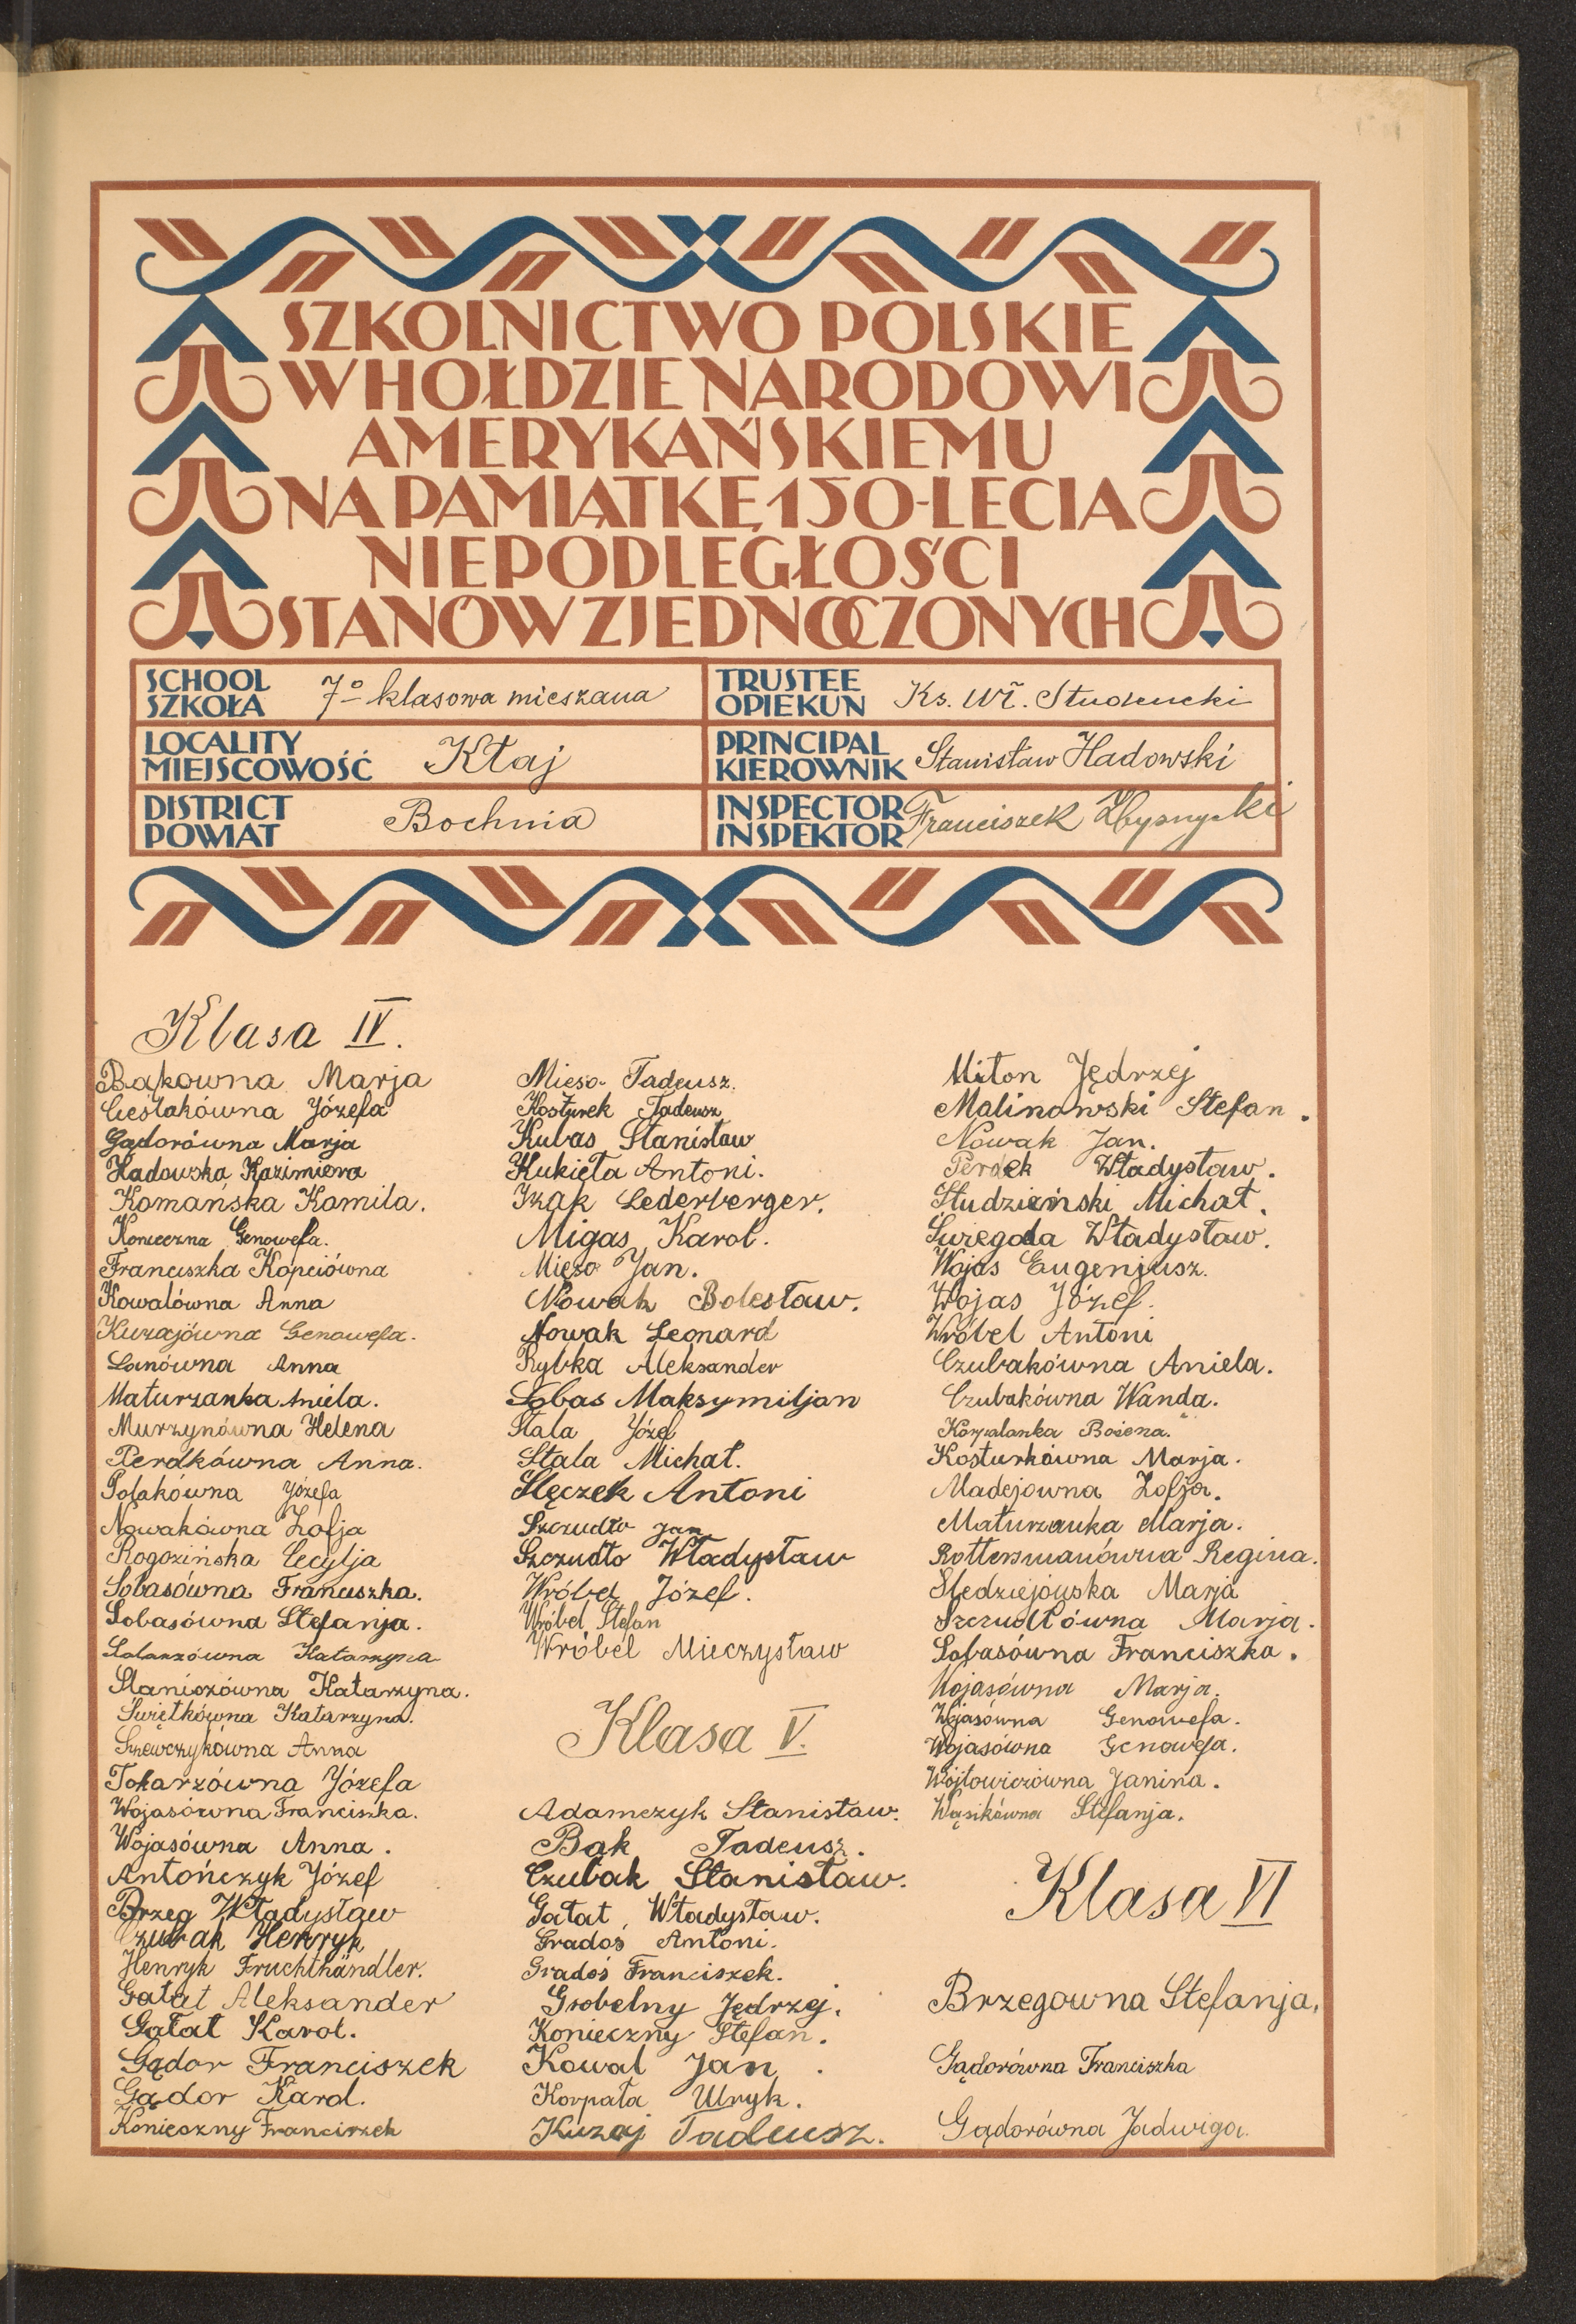 SZKOLNICTWO POLSKIE
W HOŁDZIE NARODOWI
AMERYKAŃSKIEMU
NA PAMIĄTKĘ 150-LECIA
NIEPODLEGŁOŚCI
STANÓW ZJEDNOCZONYCH
SCHOOL
SZKOŁA
7º klasowa mieszana
TRUSTEE
OPIEKUN
Ks. Wł. Studencki
LOCALITY
MIEJSCOWOŚĆ
Kłaj
PRINCIPAL
KIEROWNIK
Stanisław Hadowski
DISTRICT
POWIAT
Bochnia
INSPECTOR
INSPEKTOR
Franciszek
Klasa IV.
Bąkowna Marja
Cieślakówna Józefa
Gądorówna Marja
Hadowska Kazimiera
Komańska Kamila.
Konieczna Genowefa.
Franciszka Kopciówna
Kowalówna Anna
Kurajówna Genowefa.
Lanówna Anna
Maturzanka Aniela.
Murzynówna Helena
Perdkówna Anna.
Polakówna Józefa
Nowakówna Zofja
Rogozińska Cecylja
Sobasówna Franciszka.
Sobasówna Stefanja.
Katarzyna
Staniszówna Katarzyna.
Świętkówna Katarzyna.
Szewczykówna Anna
Tokarzówna Józefa
Wojasówna Franciszka.
Wojasówna Anna.
Antończyk Józef
Brzeg Władysław
Czubak Henryk
Henryk Fruchthändler.
Gałat Aleksander
Gałat Karol.
Gądor Franciszek
Gądor Karol.
Konieczny Franciszek
Mięso Tadeusz.
Kosturek Tadeusz
Kubas Stanisław
Kukięła Antoni.
Izak Lederberger.
Migas Karol.
Mięso Jan.
Nowak Bolesław.
Nowak Leonard
Rybka Aleksander
Sobas Maksymiljan
Stala Józef
Stala Michał.
Ślęczek Antoni
Szczudło Jan
Szczudło Władysław
Wróbel Józef.
Wróbel Stefan
Wróbel Mieczysław
Klasa V.
Adamczyk Stanisław.
Bąk Tadeusz.
Czubak Stanisław.
Gałat Władysław.
Grados Antoni.
Gradoś Franciszek.
Grobelny Jędrzej.
Konieczny Stefan.
Kowal Jan.
Korpała Ulryk.
Kuzaj Tadeusz.
Miton Jędrzej
Malinowski Stefan.
Nowak Jan.
Perdek Władysław.
Studzieński Michał.
Świegoda Władysław.
Wojas Eugenjusz.
Wojas Józef.
Wróbel Antoni
Czubakówna Aniela.
Czubakówna Wanda.
Korpalanka Bożena.
Kosturkówna Marja.
Madejowna Zofja.
Maturzanka Marja.
Rottersmanówna Regina.
Śledziejowska Marja
Szczudłówna Marja.
Sobasówna Franciszka.
Wojasówna Marja.
Wojasówna Genowefa.
Wojasówna Genowefa.
Wójtowiczówna Janina.
Wąsikówna Stefanja.
Klasa VI
Brzegowna Stefanja.
Gądorówna Franciszka
Gądorówna Jadwiga.